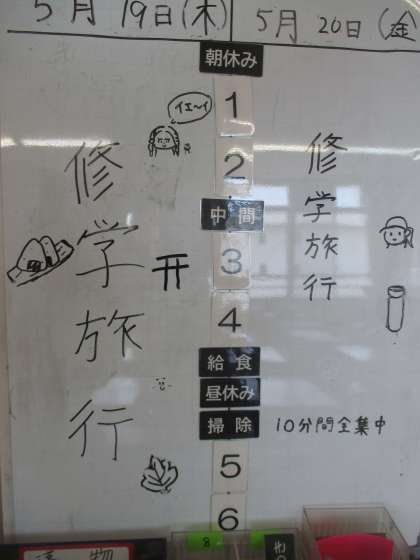 5月19日(木)
5月20日(金
朝休み
1
イエ〜イ
2
中間
3
4
給食
昼休み
掃除
10分間全集中
5
6
修学旅行
修学旅行
8